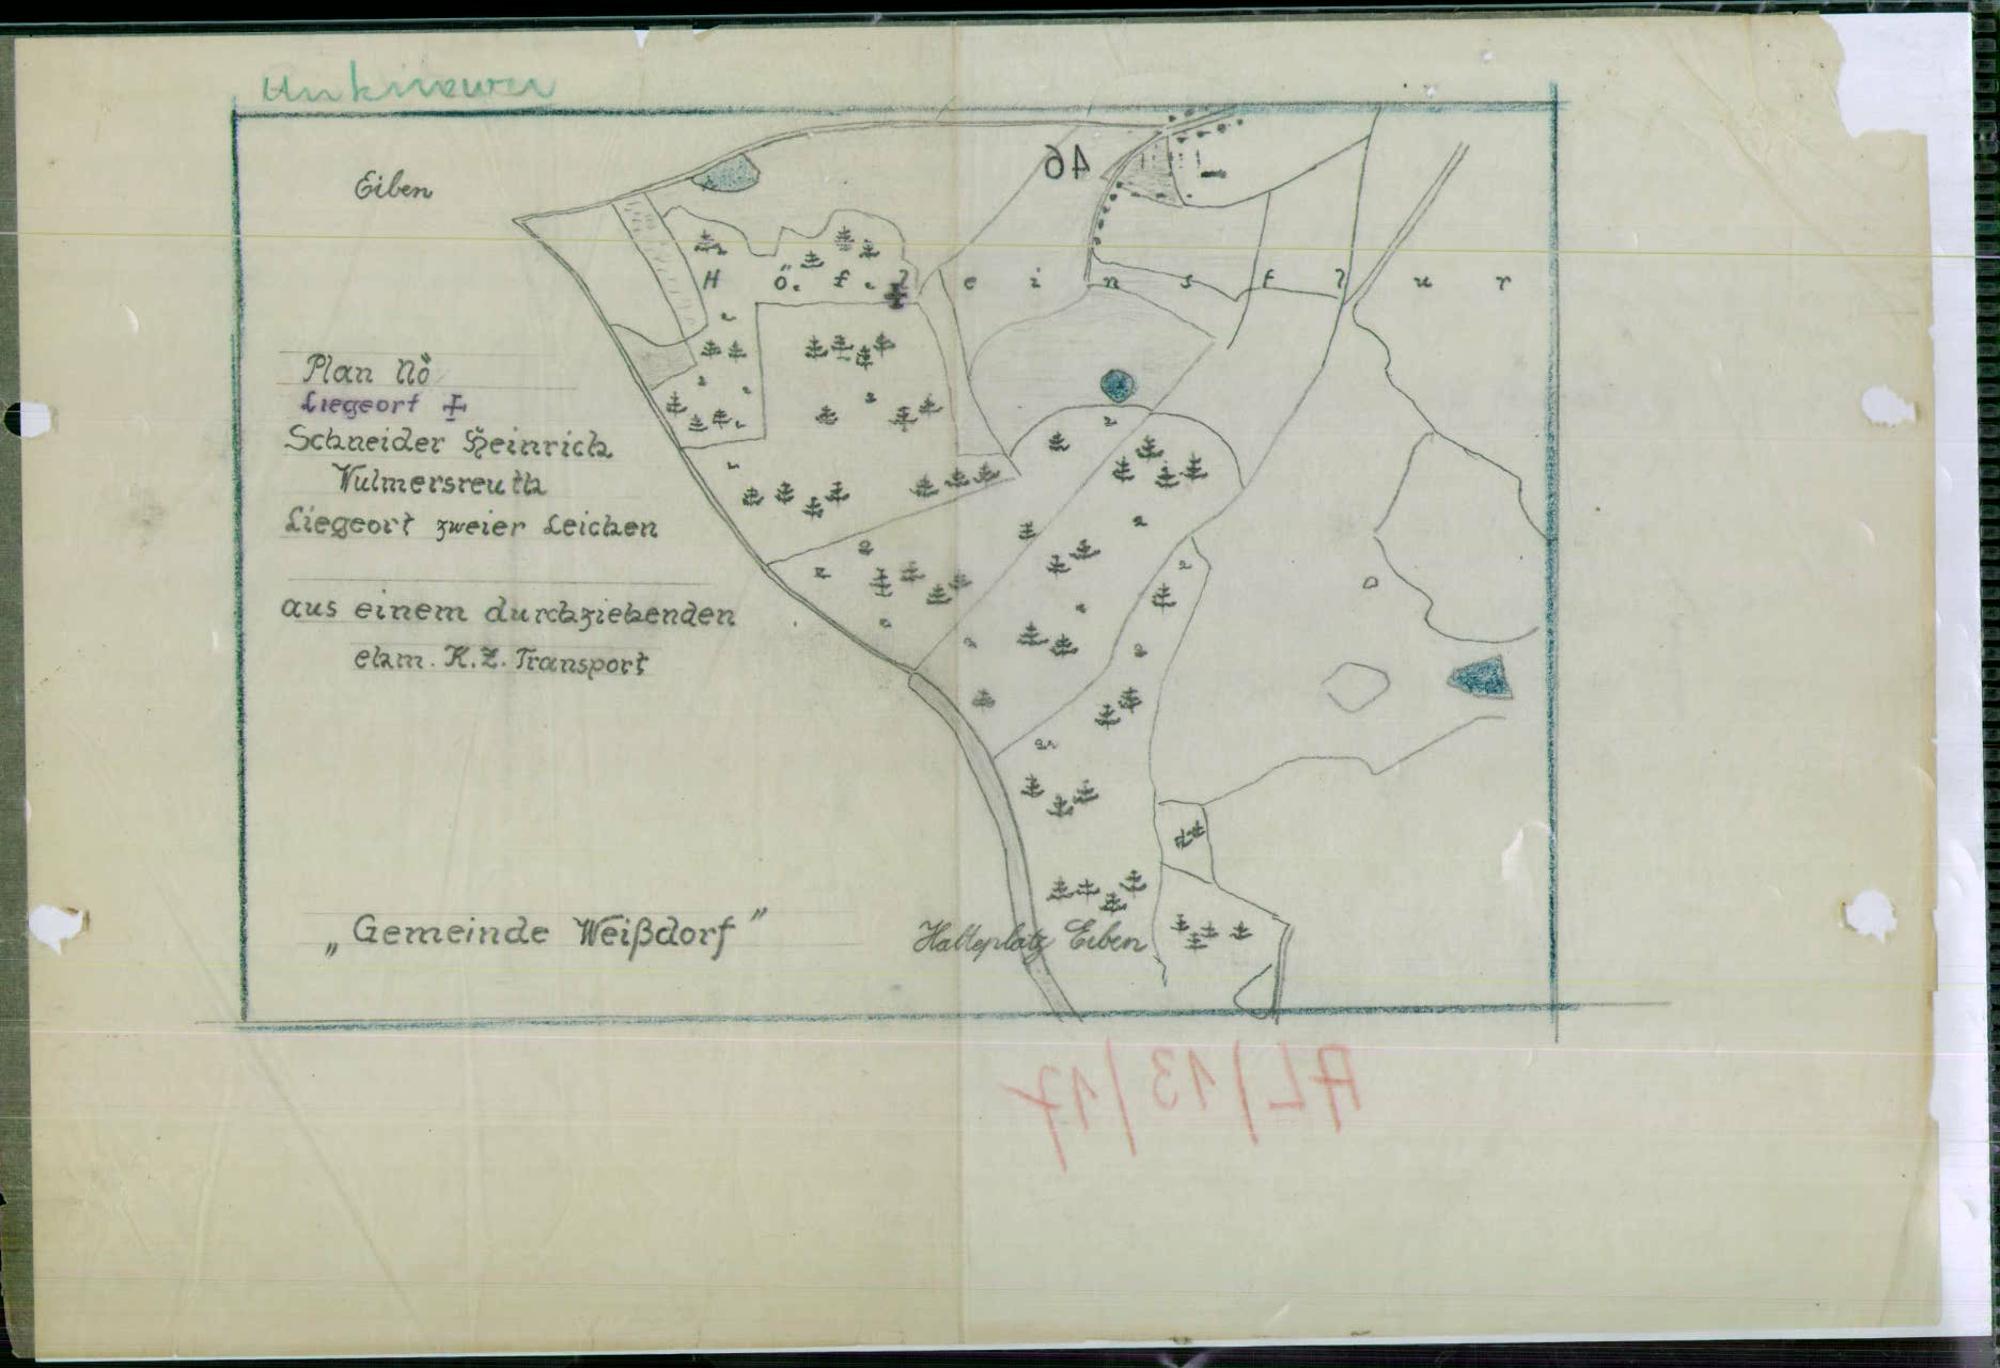 Unknown
Eiben
46
Höfleinsflur
Plan No
Liegeort ‡
Schneider Heinrich
Wulmersreuth
Liegeort zweier Leichen
aus einem durchziehenden
ehm. K.Z. Transport
„Gemeinde Weißdorf"
Halteplatz Eiben
AL/13/17